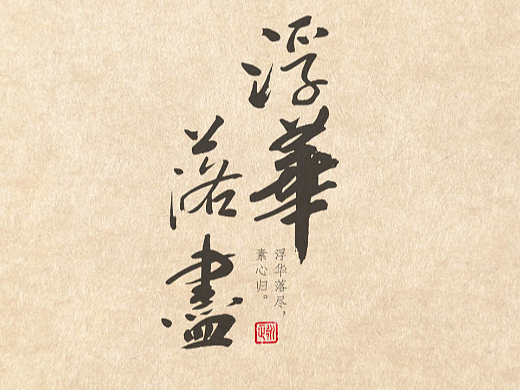 浮華
落盡
浮华落尽，
素心归。